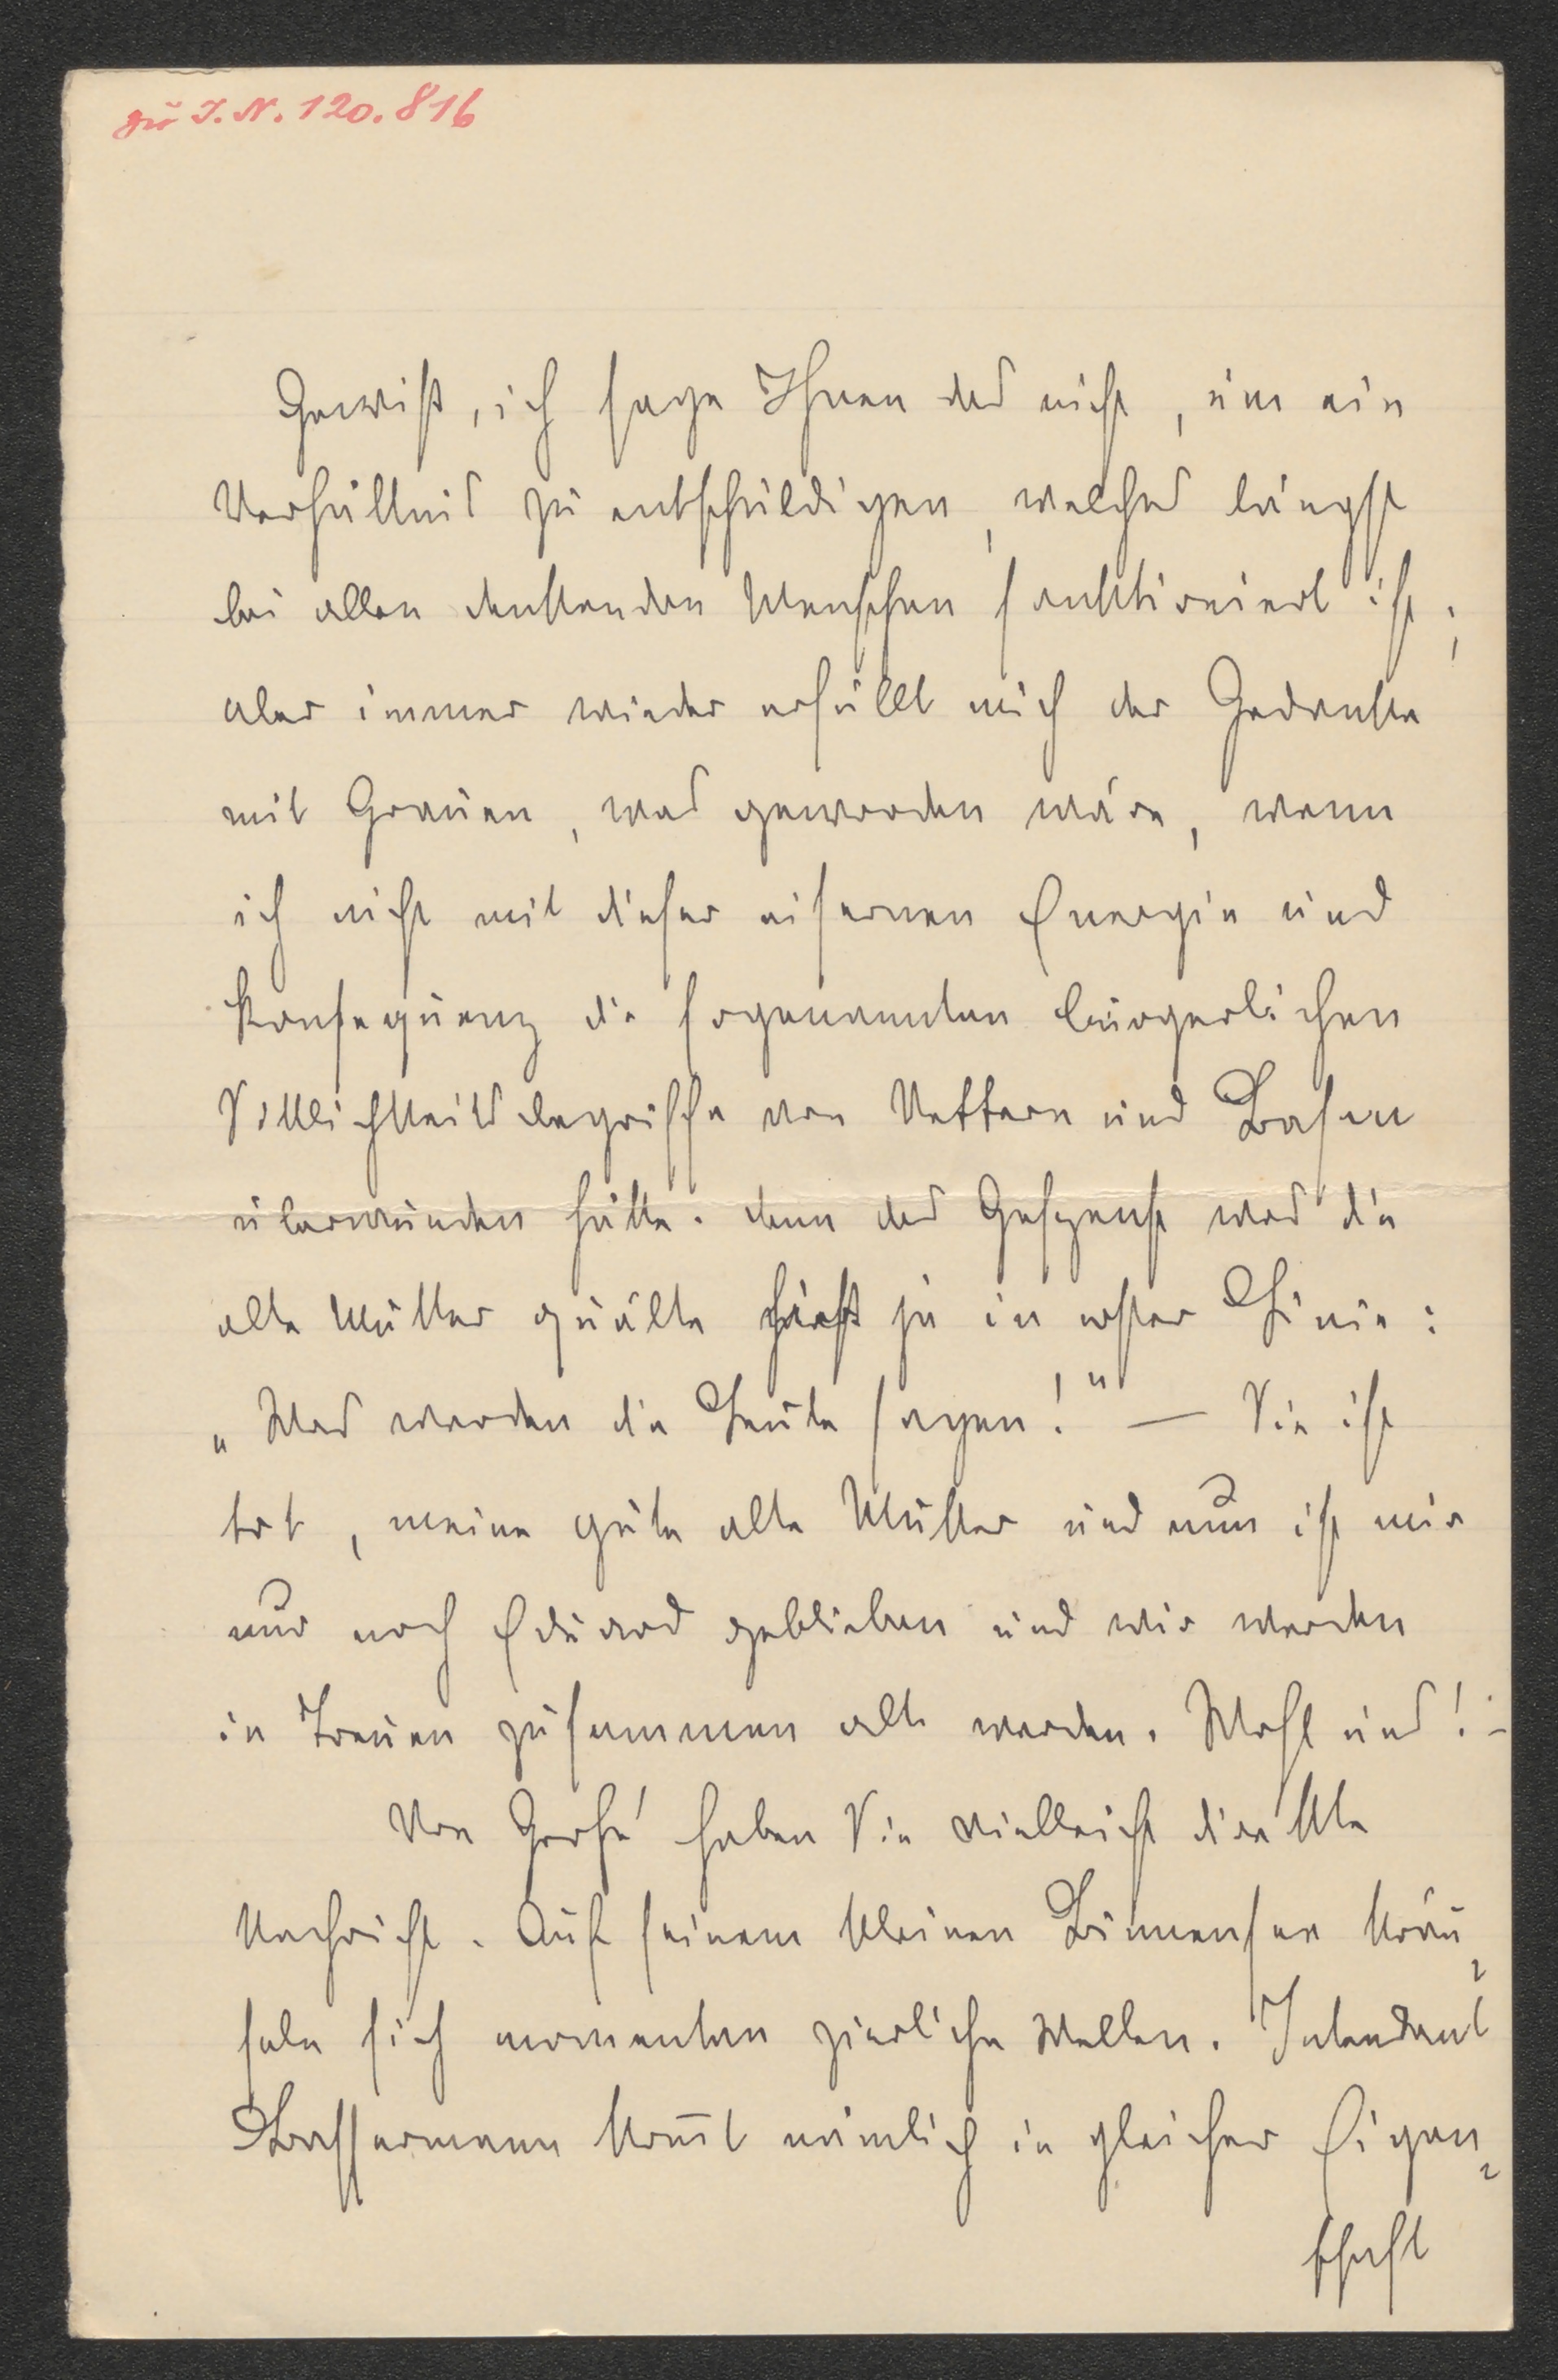 zu I. N. 120.816
Gewiß, ich sage Ihnen das nicht, um ein
Verhältnis zu entschuldigen, welches längst
bei allen denkenden Menschen sanktioniert ist;
aber immer wieder erfüllt mich der Gedanke
mit Grauen, was geworden wäre, wenn
ich nicht mit dieser eisernen Energie und
Konsequenz die sogenannten bürgerlichen
Sittlichkeitsbegriffe von Vettern und Basen
überwunden hätte. denn das Gespenst was die
alte Mutter quälte hieß ja in erster Linie:
„Was werden die Leute sagen!" — Sie ist
tot, meine gute alte Mutter und nun ist mir
nur noch Eduard geblieben und wir werden
in Treuen zusammen alt werden. Wohl uns! –
Von Grohé haben Sie vielleicht direkte
Nachricht. Auf seinem kleinen Binnensee kräu-
seln sich momentan zierliche Wellen. Intendant
Bassermann kom̅t nämlich in gleicher Eigen-
schaft